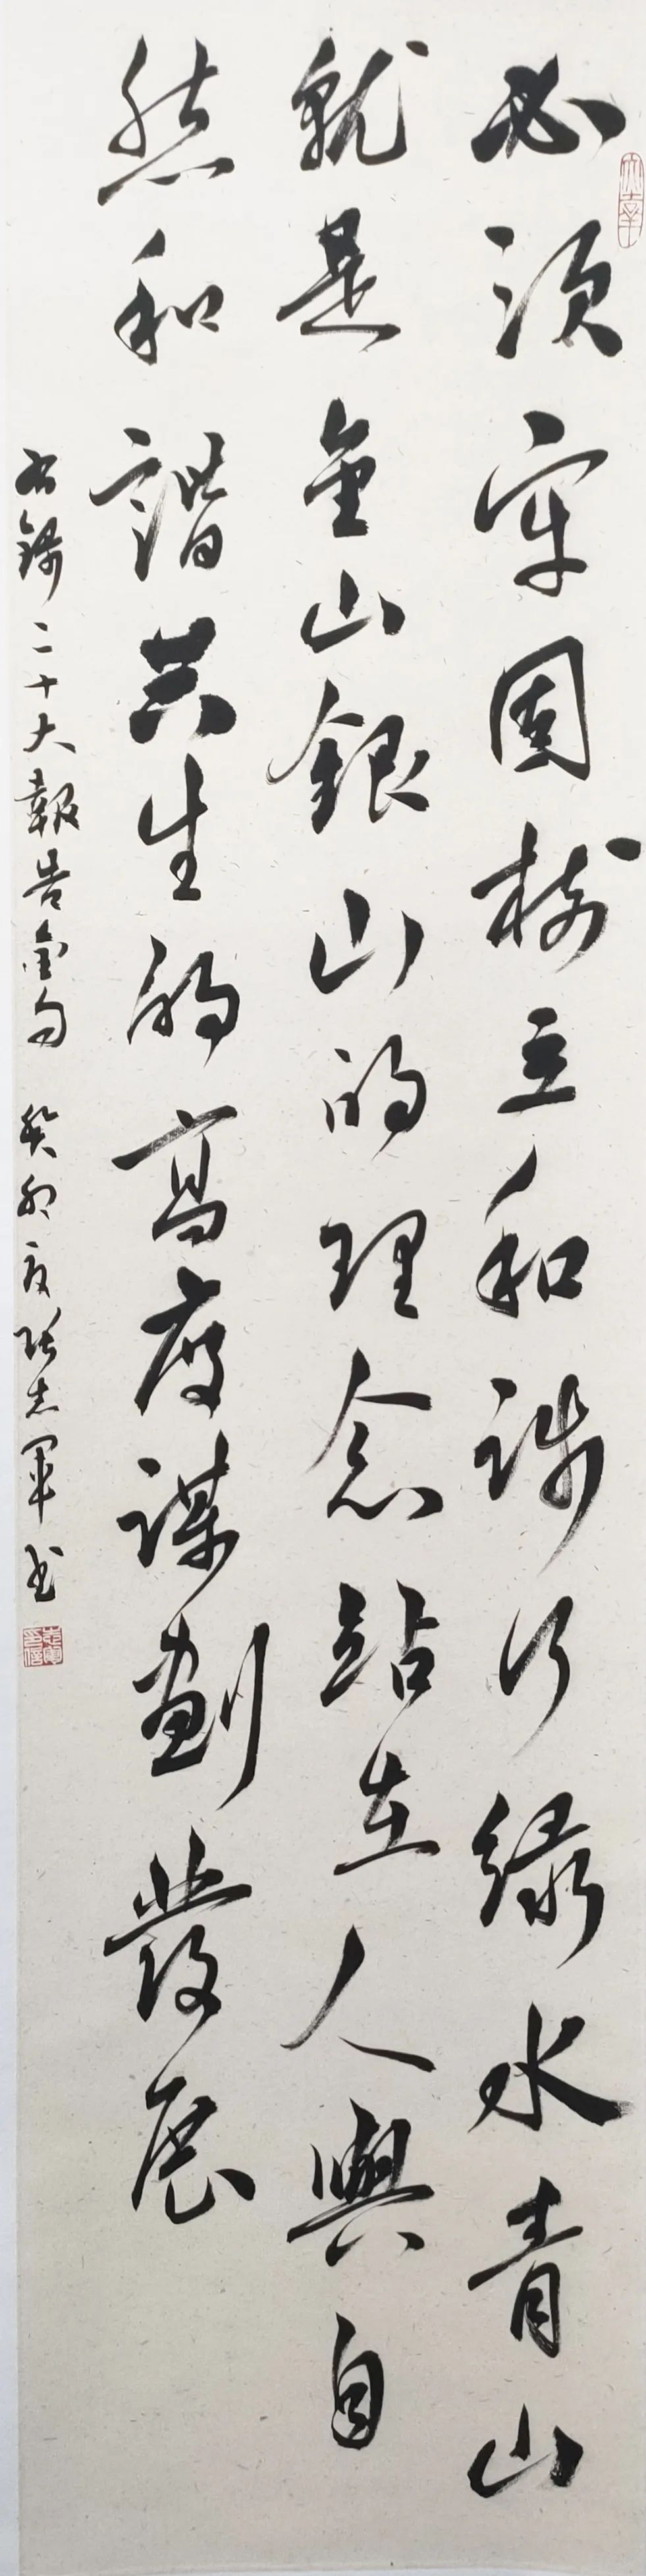 必須牢固樹立和踐行绿水青山
就是金山銀山的理念站在人與自
然和諧共生的高度謀劃發展
右錄二十大報告金句 癸卯夏張志軍書